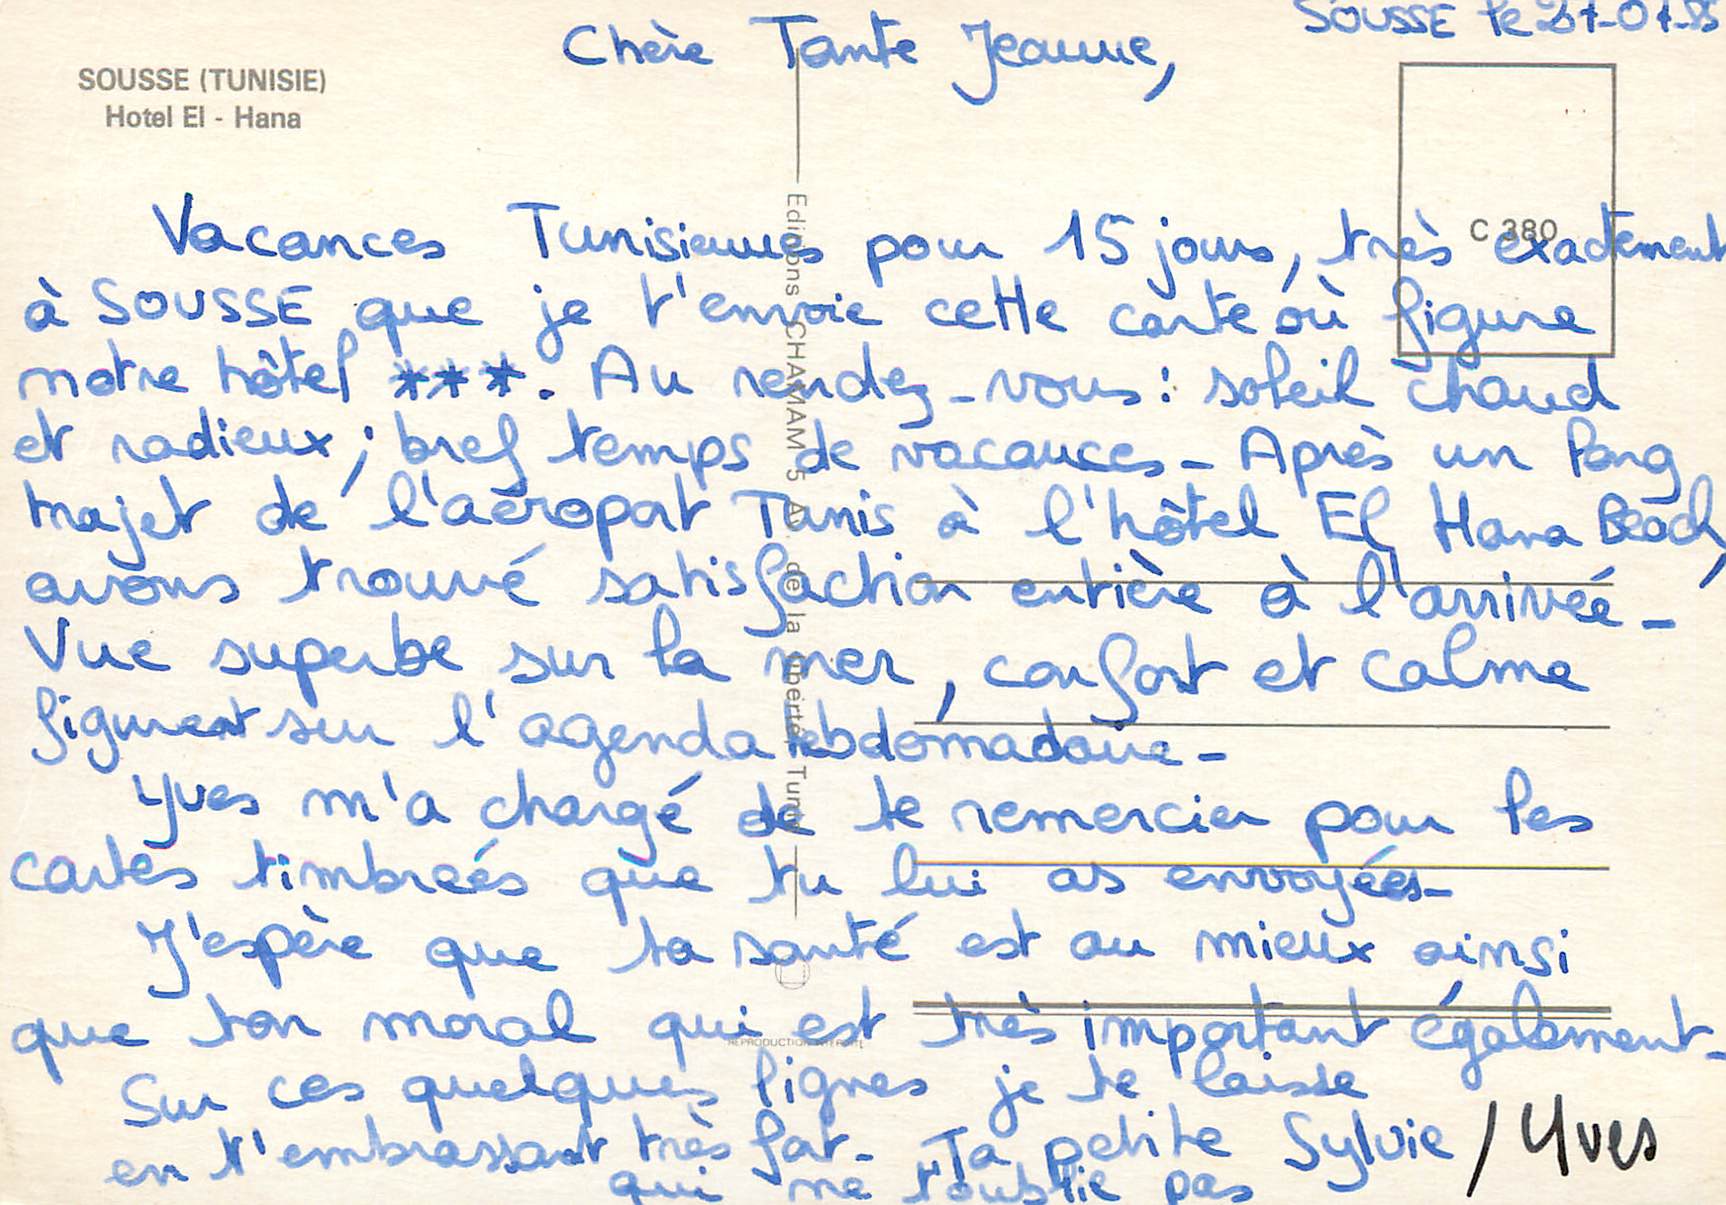 SOUSSE le 27-07-85
Chère Tante Jeanne,
SOUSSE (TUNISIE)
Hotel El - Hana
C 380
Vacances Tunisiennes pour 15 jours, très exactement
à SOUSSE que je t'envoie cette carte où figure
notre hôtel ***. Au rendez-vous : soleil chaud
et radieux ; bref temps de vacances - Après un long
trajet de l'aéroport Tunis à l'hôtel El Hana Beach,
avons trouvé satisfaction entière à l'arrivée -
Vue superbe sur la mer, confort et calme
figurent sur l'agenda hebdomadaire -
Yves m'a chargé de te remercier pour les
cartes timbrées que tu lui as envoyées -
J'espère que ta santé est au mieux ainsi
que ton moral qui est très important également -
Sur ces quelques lignes je te laisse
en t'embrassant très fort - Ta petite Sylvie / Yves
qui ne t'oublie pas
Editions CHAMAM 5 Av. de la Liberté - Tunis
REPRODUCTION INTERDITE